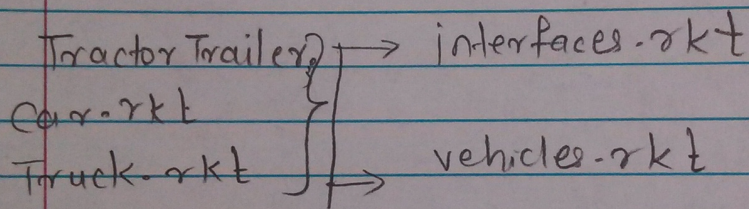 Tractor Trailer → interfaces.rkt
Car.rkt
Truck.rkt → vehicles.rkt